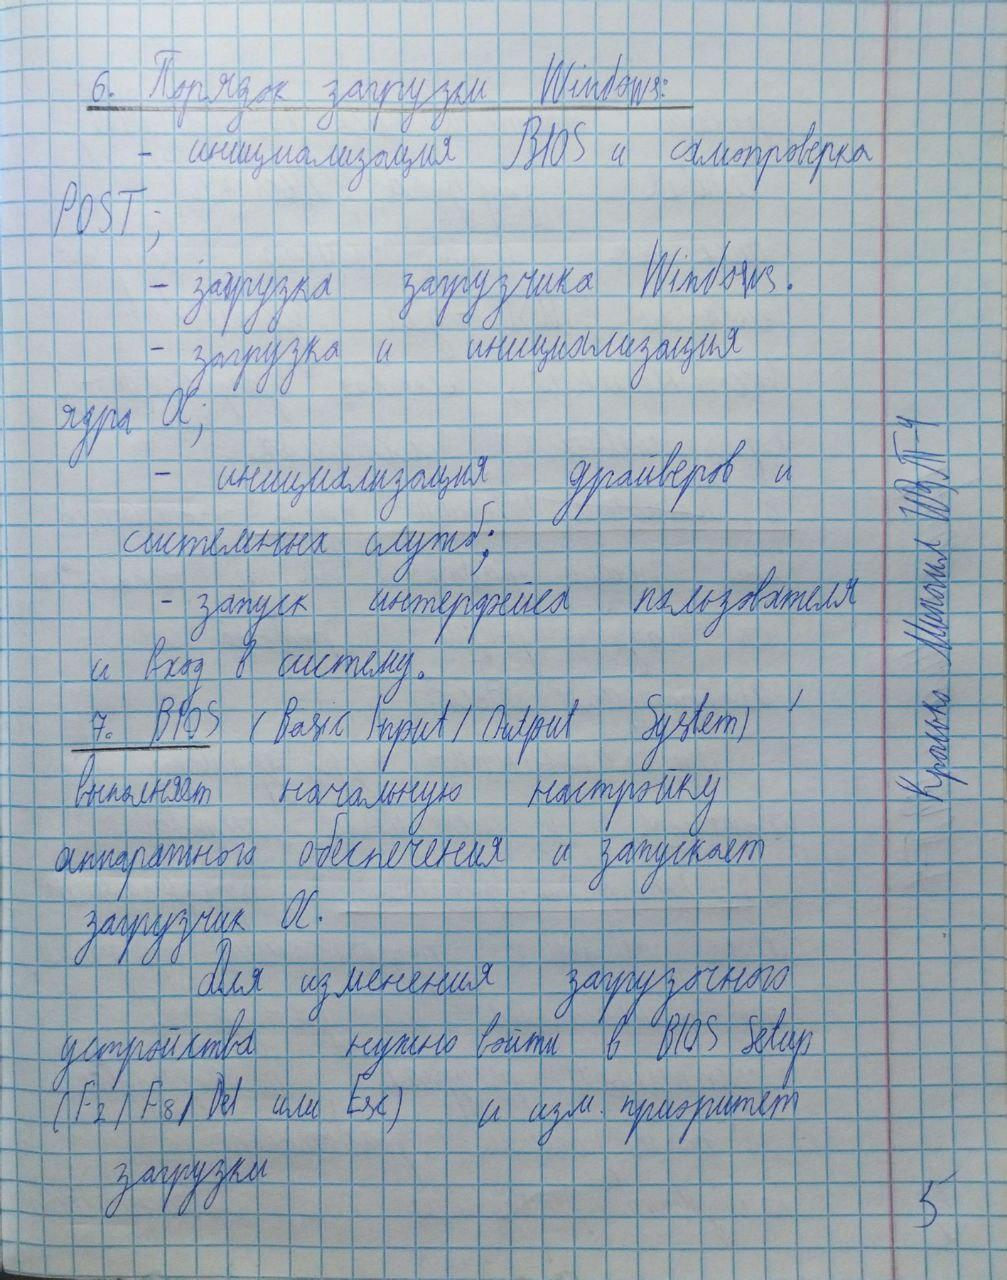 6. Порядок загрузки Windows:
- инициализация BIOS и самопроверка
POST;
- загрузка загрузчика Windows.
- загрузка и инициализация
ядра ОС;
- инициализация драйверов и
системных служб;
- запуск интерфейса пользователя
и вход в систему.
7. BIOS (Basic Input / Output System)
выполняет начальную настройку
аппаратного обеспечения и запускает
загрузчик ОС.
Для изменения загрузочного
устройства нужно войти в BIOS Setup
(F2 / F8 / Del или Esc) и изм. приоритет
загрузки
Михаил
5